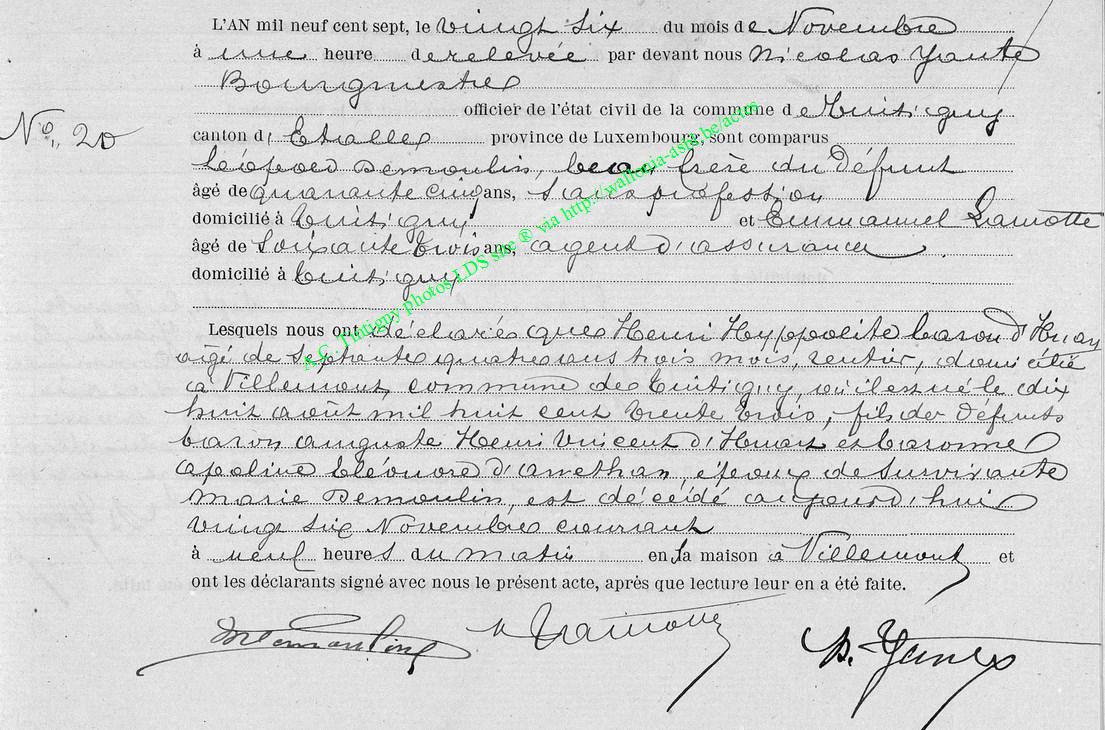 L'AN mil neuf cent sept, le vingt six du mois de Novembre
à une heure de relevée par devant nous Nicolas
Bourgmestre
officier de l'état civil de la commune de Tintigny
No. 20
canton d'Etalle province de Luxembourg, sont comparus
Léopold Demoulin, beau frère du Défunt
âgé de quarante cinq ans, sans profession
domicilié à Tintigny et Emmanuel Lamotte
âgé de Soixante trois ans, agent d'assurance
domicilié à Tintigny
Lesquels nous ont déclarés que Henri Hyppolite baron d'Huart
âgé de Septante quatre ans trois mois, rentier, domicilié
à Villemont, commune de Tintigny, où il est né le dix
huit août mil huit cent trente trois, fils des Défunts
baron Auguste Henri Vincent d'Huart et baronne
Apoline Eléonore d'Anethan, époux de Survivante
Marie Demoulin, est décédé aujourd'hui
vingt six Novembre courant
à neuf heures du matin en sa maison à Villemont et
ont les déclarants signé avec nous le présent acte, après que lecture leur en a été faite.
Lamotte
A.C. Tintigny photos LDS site ® via http://wallonia-asbl.be/actes